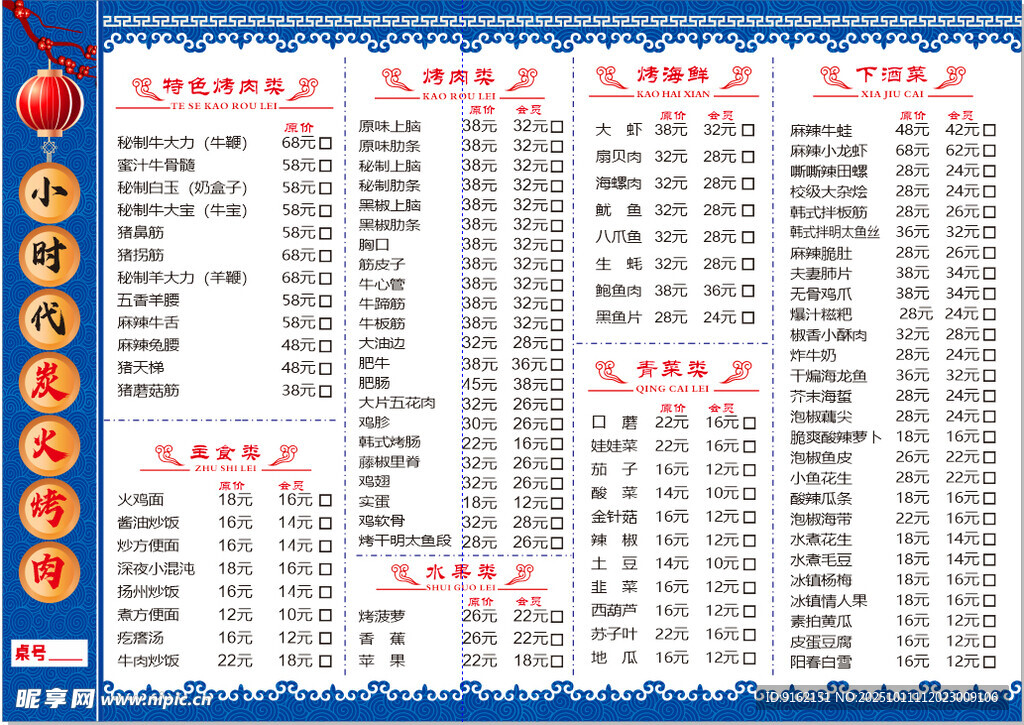 小
时
代
炭
火
烤
肉
桌号
特色烤肉类
TE SE KAO ROU LEI
原价
秘制牛大力（牛鞭） 68元
蜜汁牛骨髓 58元
秘制白玉（奶盒子） 58元
秘制牛大宝（牛宝） 58元
猪鼻筋 58元
猪拐筋 68元
秘制羊大力（羊鞭） 68元
五香羊腰 58元
麻辣牛舌 58元
麻辣兔腰 48元
猪天梯 48元
猪蘑菇筋 38元
主食类
ZHU SHI LEI
原价 会员
火鸡面 18元 16元
酱油炒饭 16元 14元
炒方便面 16元 14元
深夜小混沌 18元 16元
扬州炒饭 16元 14元
煮方便面 12元 10元
疙瘩汤 16元 12元
牛肉炒饭 22元 18元
烤肉类
KAO ROU LEI
原价 会员
原味上脑 38元 32元
原味肋条 38元 32元
秘制上脑 38元 32元
秘制肋条 38元 32元
黑椒上脑 38元 32元
黑椒肋条 38元 32元
胸口 38元 32元
筋皮子 38元 32元
牛心管 38元 32元
牛蹄筋 38元 32元
牛板筋 38元 32元
大油边 32元 28元
肥牛 38元 36元
肥肠 45元 38元
大片五花肉 32元 26元
鸡胗 30元 26元
韩式烤肠 22元 16元
藤椒里脊 32元 26元
鸡翅 32元 26元
实蛋 18元 12元
鸡软骨 32元 28元
烤干明太鱼段 28元 26元
水果类
SHUI GUO LEI
原价 会员
烤菠萝 26元 22元
香 蕉 26元 22元
苹 果 22元 18元
烤海鲜
KAO HAI XIAN
原价 会员
大 虾 38元 32元
扇贝肉 32元 28元
海螺肉 32元 28元
鱿 鱼 32元 28元
八爪鱼 32元 28元
生 蚝 32元 28元
鲍鱼肉 38元 36元
黑鱼片 28元 24元
青菜类
QING CAI LEI
原价 会员
口 蘑 22元 16元
娃娃菜 22元 16元
茄 子 16元 12元
酸 菜 14元 10元
金针菇 16元 12元
辣 椒 16元 12元
土 豆 14元 10元
韭 菜 16元 12元
西葫芦 16元 12元
苏子叶 22元 16元
地 瓜 16元 12元
下酒菜
XIA JIU CAI
原价 会员
麻辣牛蛙 48元 42元
麻辣小龙虾 68元 62元
嘶嘶辣田螺 28元 24元
校级大杂烩 28元 24元
韩式拌板筋 28元 26元
韩式拌明太鱼丝 36元 32元
麻辣脆肚 28元 26元
夫妻肺片 38元 34元
无骨鸡爪 38元 34元
爆汁糍粑 28元 24元
椒香小酥肉 32元 28元
炸牛奶 28元 24元
干煸海龙鱼 36元 32元
芥末海蜇 28元 24元
泡椒藕尖 28元 24元
脆爽酸辣萝卜 18元 16元
泡椒鱼皮 26元 22元
小鱼花生 28元 22元
酸辣瓜条 18元 16元
泡椒海带 22元 16元
水煮花生 18元 14元
水煮毛豆 18元 14元
冰镇杨梅 18元 16元
冰镇情人果 18元 16元
素拍黄瓜 16元 12元
皮蛋豆腐 16元 12元
阳春白雪 16元 12元
昵享网 www.nipic.cn
ID:9162151 NO:20251011112023009106